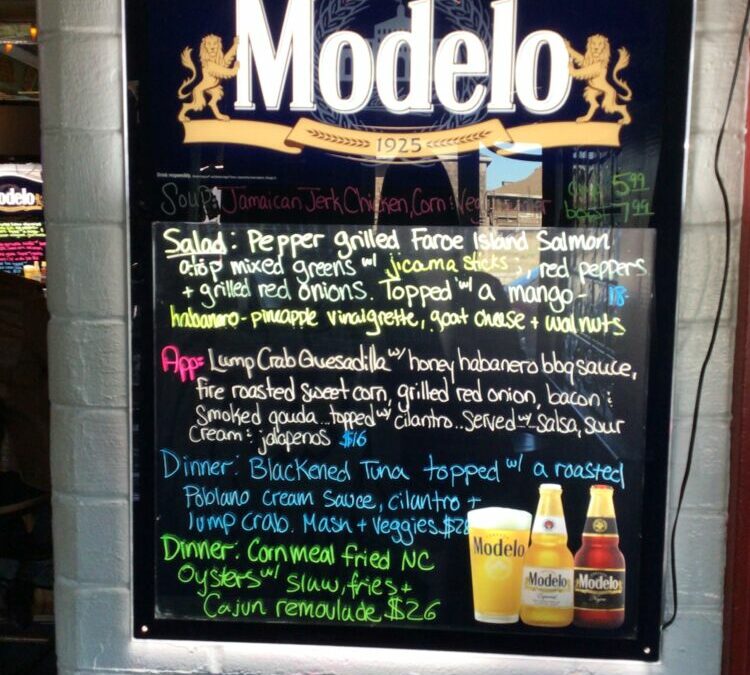 Modelo
1925
Soup: Jamaican Jerk Chicken, Corn
5.99
7.99
Salad: Pepper grilled Faroe Island Salmon
atop mixed greens w/ jicama sticks, red peppers
+ grilled red onions. Topped w/ a mango- 18-
habanero-pineapple vinaigrette, goat cheese + walnuts
App: Lump Crab Quesadilla w/ honey habanero bbq sauce,
fire roasted sweet corn, grilled red onion, bacon &
Smoked gouda...topped w/ cilantro...Served w/ Salsa, sour
cream & jalapenos $16
Dinner: Blackened Tuna topped w/ a roasted
Poblano cream sauce, cilantro +
lump crab. Mash + veggies
Dinner: Cornmeal fried NC
Oysters w/ slaw, fries +
Cajun remoulade $26
Modelo
Modelo
Especial
Modelo
Negra
Modelo